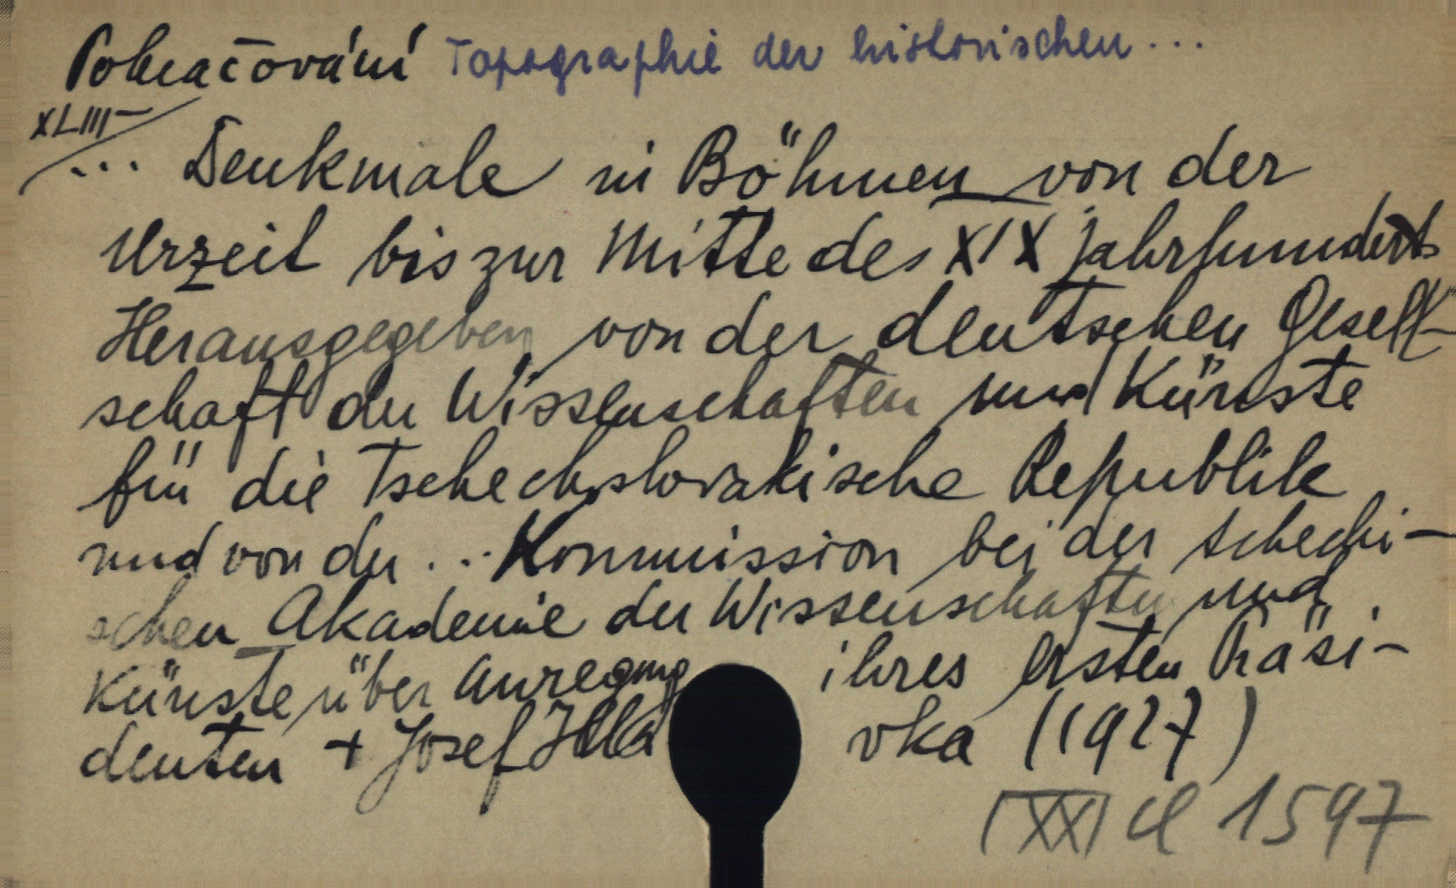 Pokračování Topographie der historischen...
XLIII-
... Denkmale in Böhmen von der
Urzeit bis zur Mitte des XIX Jahrhunderts
Herausgegeben von der deutschen Gesell-
schaft der Wissenschaften und Künste
für die Tschechoslovakische Republik
und von der ... Kommission bei der tschechi-
schen Akademie der Wissenschaften und
Künste über Anregung ihres ersten Präsi-
denten + Josef Hlávka (1927)
XX d 1597